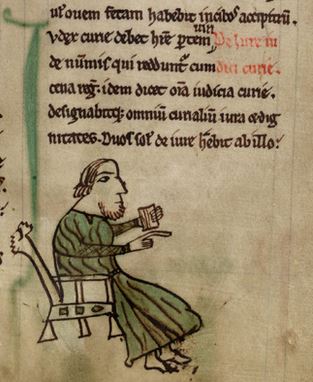 uł ouem fetam habebit ı̄ cibos acciptrū.
Vdex curie debet hr̄e ꝑtem uiri De iure iu
de nūmis qui reddunt᷑ cum dicis curie.
cena reḡ. idem dicet oīa iudicia curie.
designabitqꝫ omniū curialiū iura ⁊ dig
nitates. Duos sol᷑ de iure hēbit ab illo: